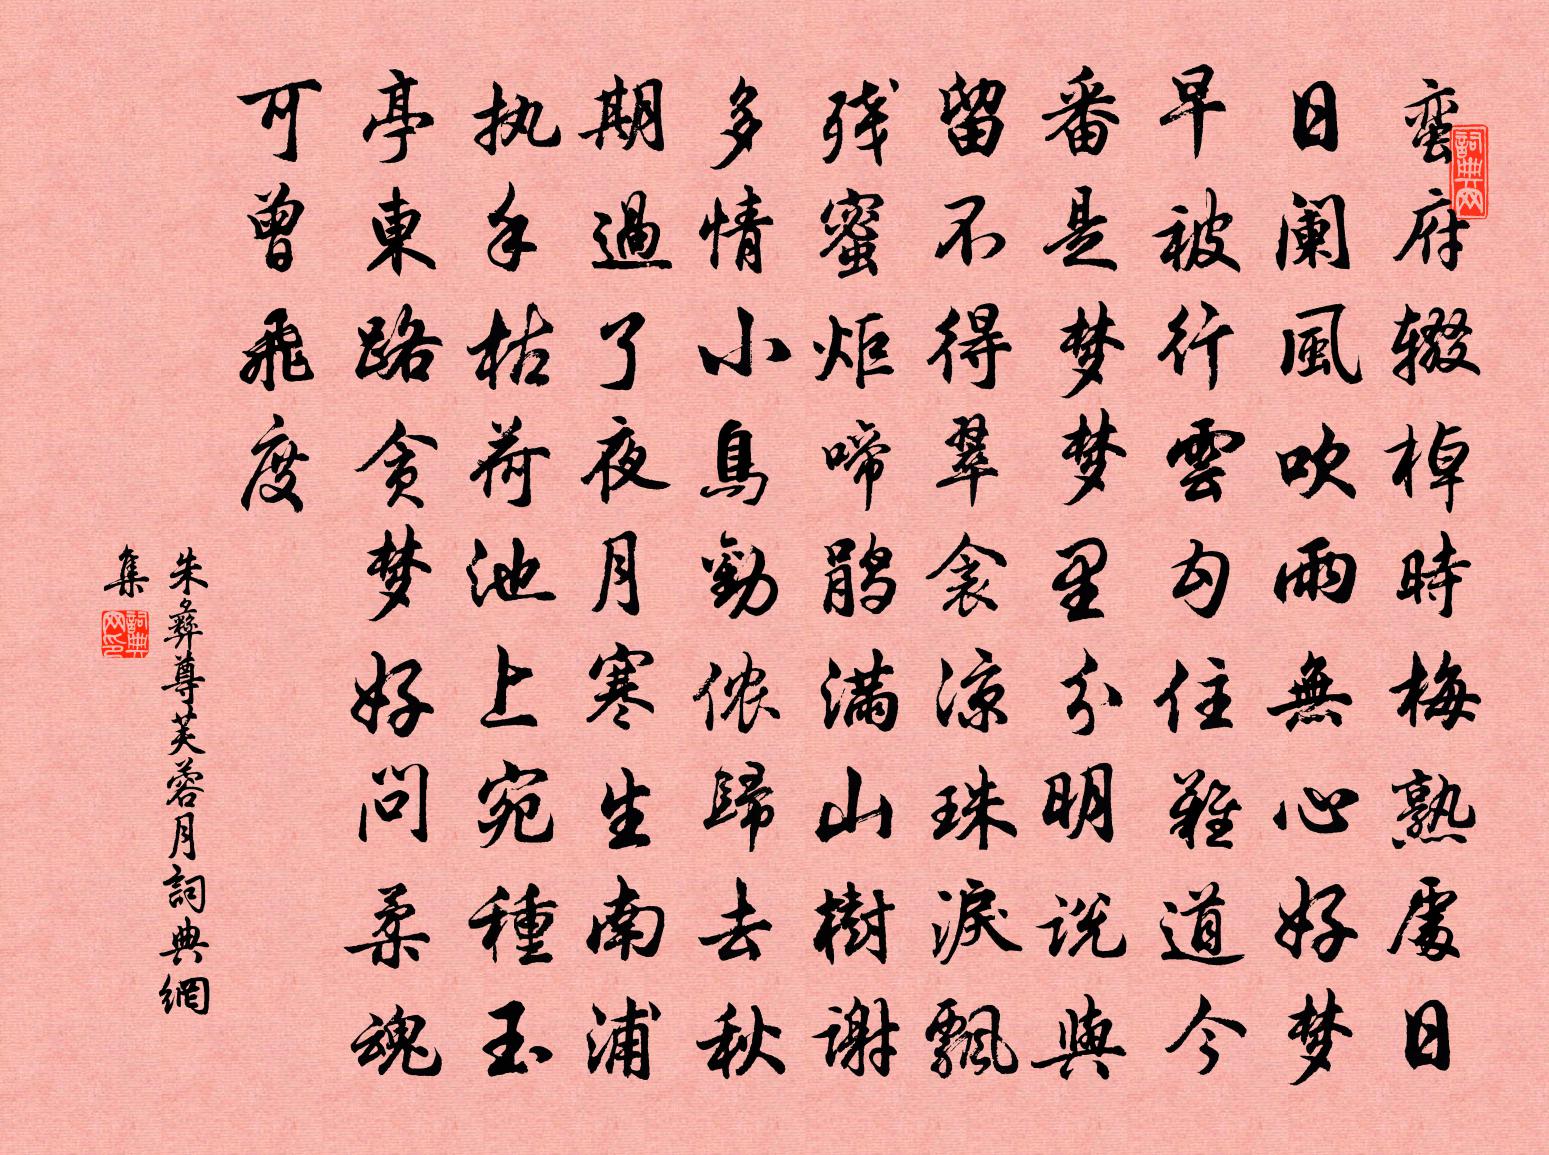 蛮府辍棹時梅熟處日
日阑風吹雨無心好梦
早被行雲勾住難道今
番是梦梦里分明说與
留不得翠衾凉珠淚飄
残蜜炬啼鹃满山樹谢
多情小鳥勸侬歸去秋
期過了夜月寒生南浦
执手枯荷池上宛種玉
亭東路贪梦好问柔魂
可曾飛度
朱彝尊芙蓉月詞典網
集
詞典网
詞典网印